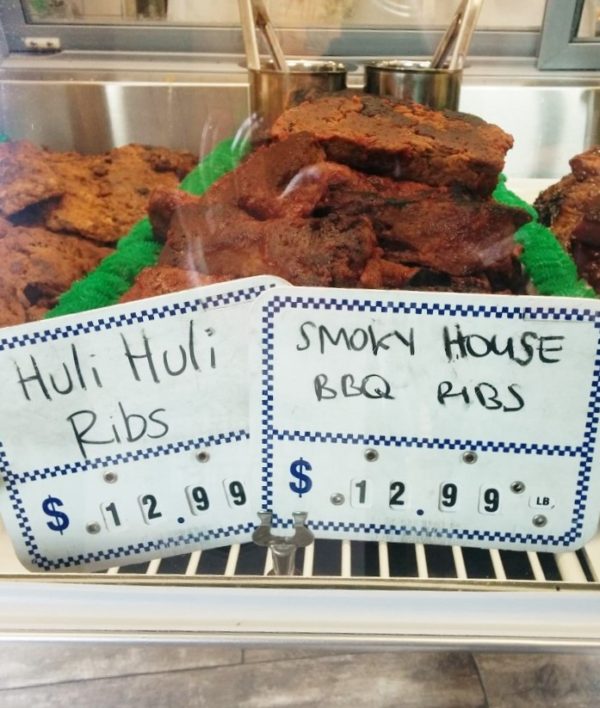 Huli Huli
Ribs
$ 12.99
SMOKY HOUSE
BBQ RIBS
$ 12.99 LB